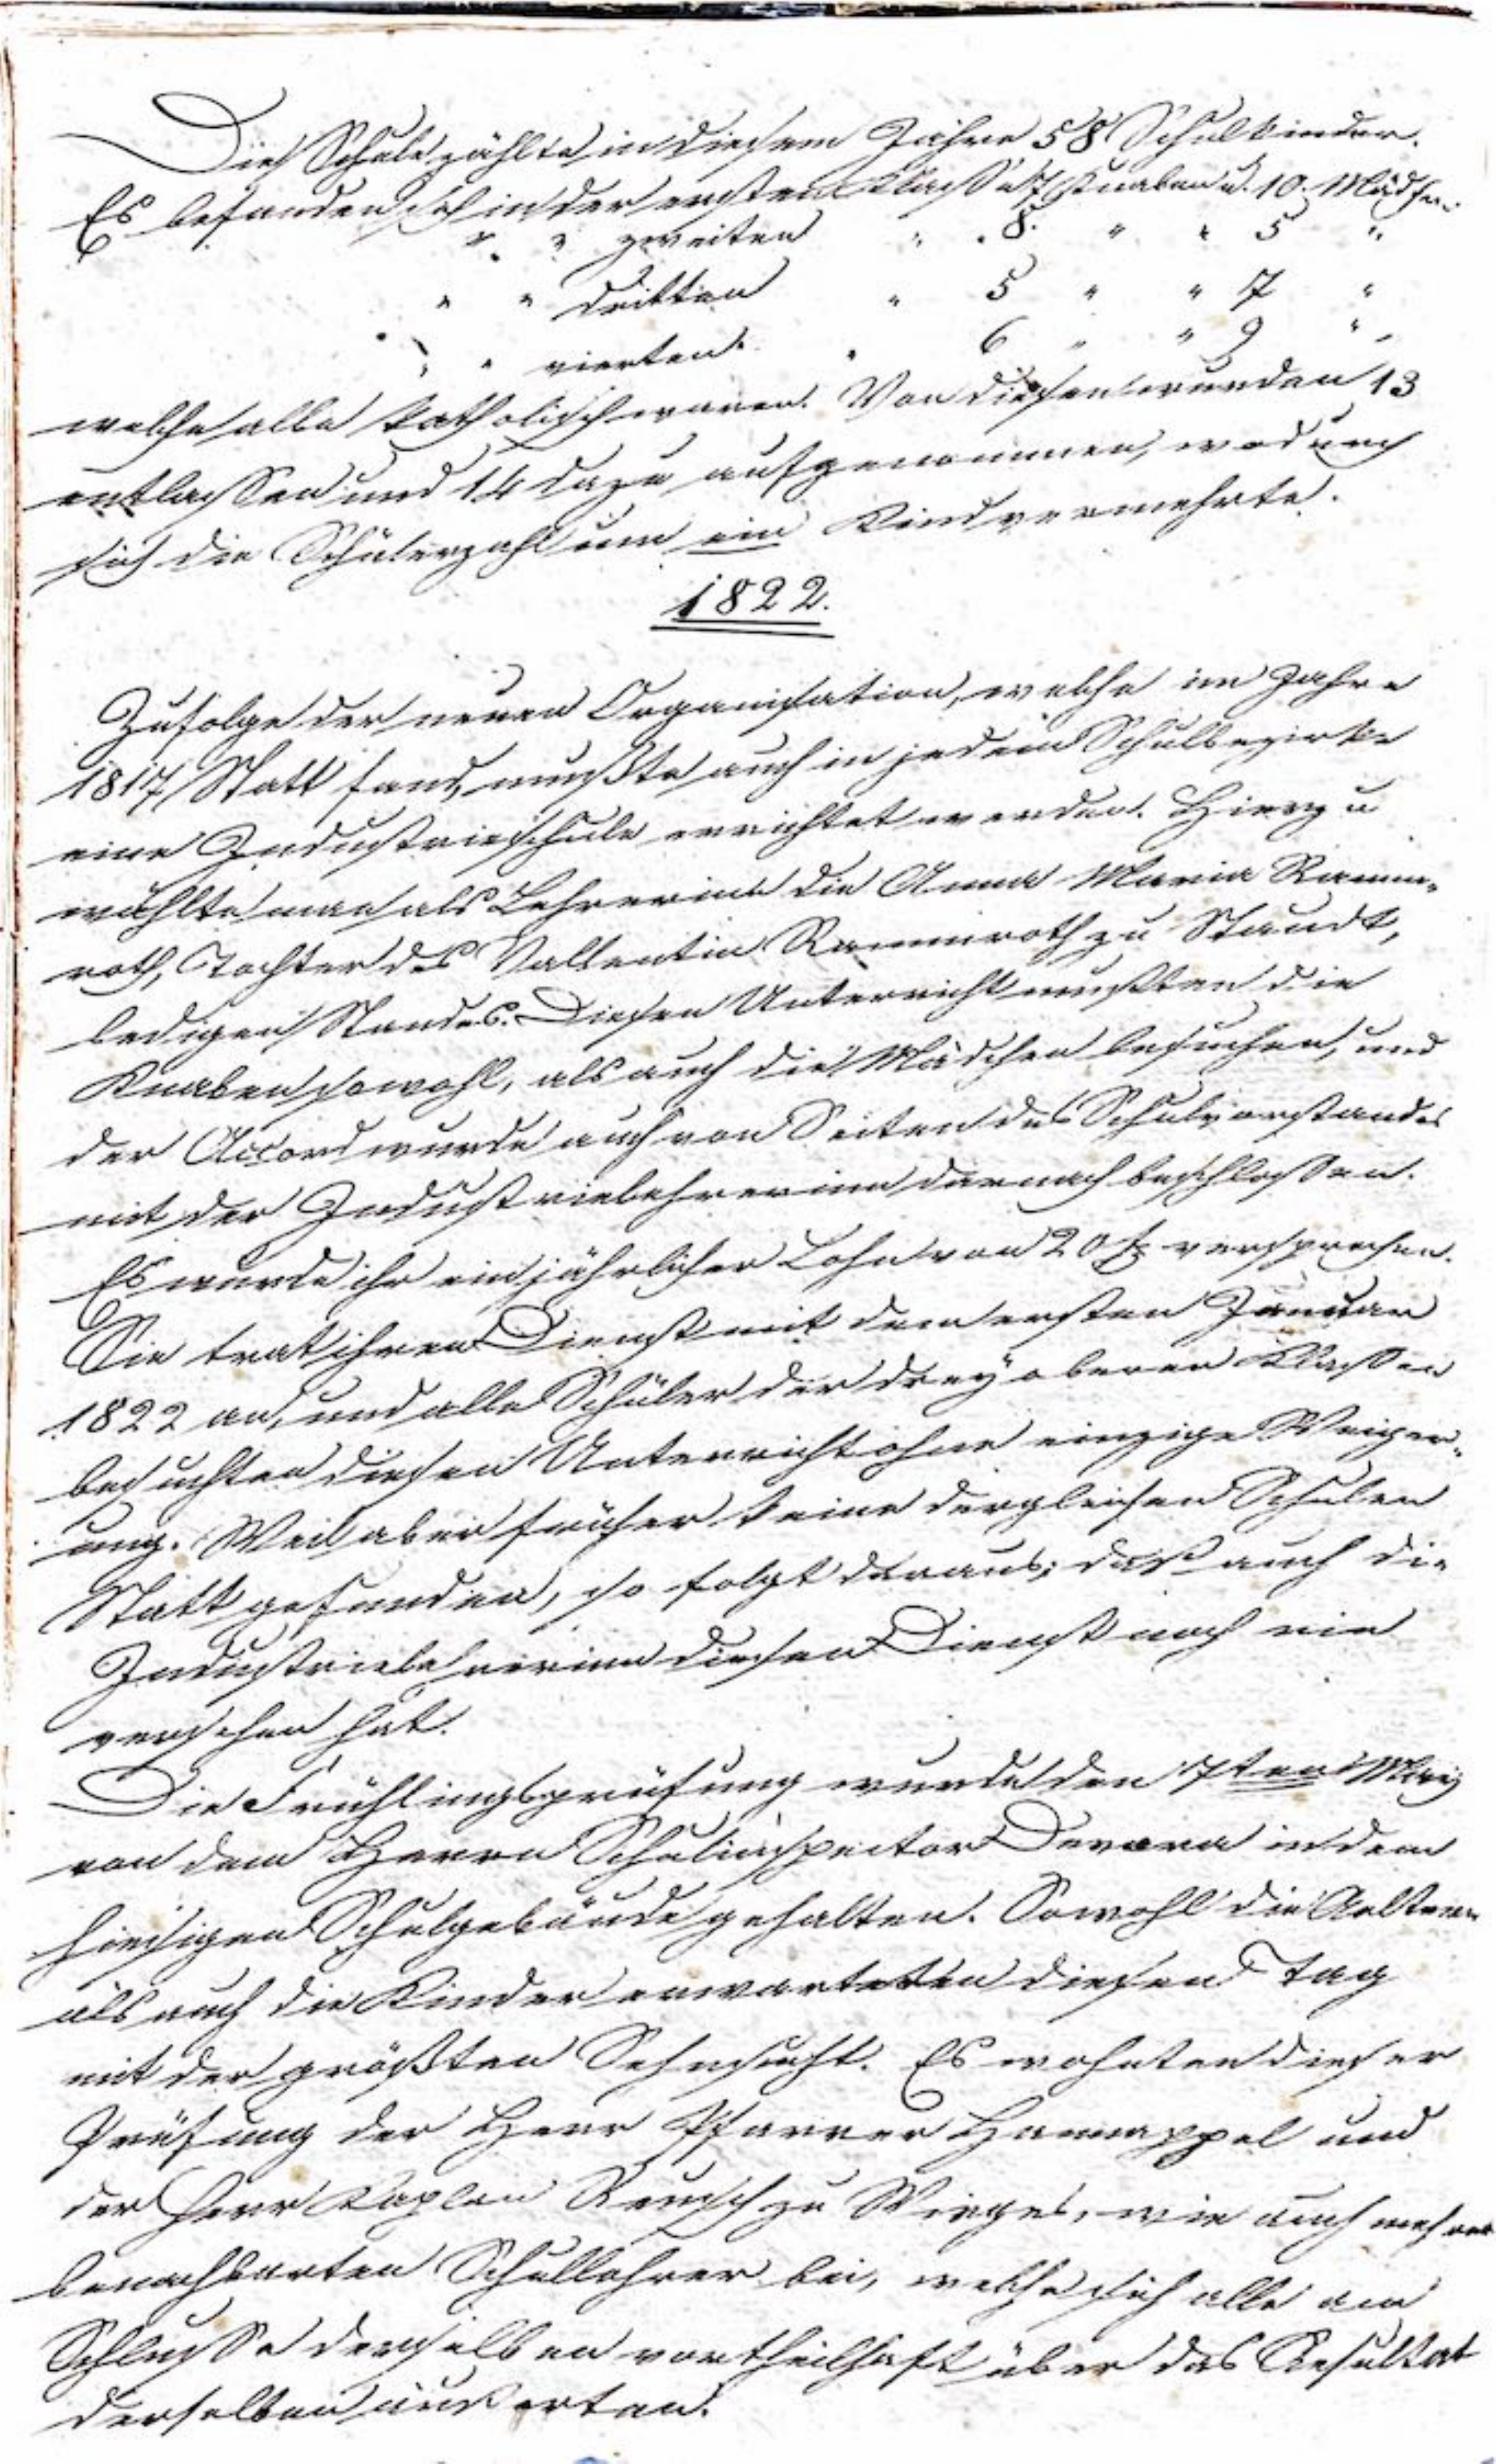 Die Schule zählte in diesem Jahre 58 Schulkinder.
Es befanden sich in der ersten Klasse 7 Knaben u. 10. Mädchen.
" " zweiten " " 8. " " 5 "
" " dritten " 5 " " 7 "
" " vierten " 6 " " 9 "
welche alle katholisch waren. Von diesen wurden 13
entlassen und 14 dazu aufgenommen, wodurch
sich die Schülerzahl um ein Kind vermehrte.
1822.
Zufolge der neuen Organisation, welche im Jahre
1817 Statt fand, mußte auch in jedem Schulbezirke
eine Industrieschule errichtet werden. Hierzu
wählte man als Lehrerinn die Anna Maria Ramm-
roth, Tochter des Vallentin Rammroth zu Staudt,
ledigen Standes. Diesen Unterricht mußten die
Knaben sowohl, als auch die Mädchen besuchen, und
der Accord wurde auch von Seiten des Schulvorstandes
mit der Industrielehrerinn darnach beschlossen.
Es wurde ihr ein jährlicher Lohn von 20 fl versprochen.
Sie trat ihren Dienst mit dem ersten Januar
1822 an, und alle Schüler der drey oberen Klassen
besuchten diesen Unterricht ohne einzige Weiger-
ung. Weil aber früher keine dergleichen Schulen
Statt gefunden, so folgt daraus; daß auch die
Industrielehrerinn diesen Dienst noch nie
versehen hat.
Die Frühlingsprüfung wurde den 7ten May
von dem Herrn Schulinspector Devora in dem
hiesigen Schulgebäude gehalten. Sowohl die Aeltern
als auch die Kinder erwarteten diesen Tag
mit der größten Sehnsucht. Es wohnten dieser
Prüfung der Herr Pfarrer Hannappel und
der Herr Kaplan Reusch zu Wirges, wie auch mehrere
benachbarten Schullehrer bei, welche sich alle am
Schlusse derselben vortheilhaft über das Resultat
derselben äußerten.